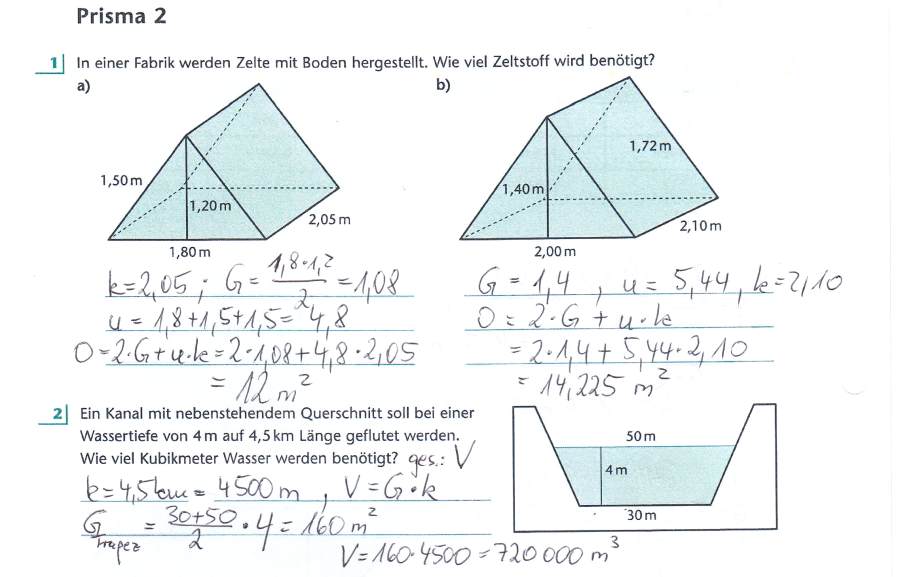 Prisma 2
1 In einer Fabrik werden Zelte mit Boden hergestellt. Wie viel Zeltstoff wird benötigt?
a)
1,50 m
1,20 m
2,05 m
1,80 m
k=2,05 ; G = 1,8·1,2/2 = 1,08
u = 1,8+1,5+1,5= 4,8
O=2·G+u·k=2·1,08+4,8·2,05
= 12 m²
b)
1,72 m
1,40 m
2,10 m
2,00 m
G = 1,4 , u = 5,44, k=2,10
O = 2·G + u·k
= 2·1,4 + 5,44·2,10
= 14,225 m²
2 Ein Kanal mit nebenstehendem Querschnitt soll bei einer
Wassertiefe von 4 m auf 4,5 km Länge geflutet werden.
Wie viel Kubikmeter Wasser werden benötigt? ges.: V
k=4,5km= 4500 m , V=G·k
G Trapez = 30+50/2 · 4 = 160 m²
V=160·4500=720 000 m³
50 m
4 m
30 m